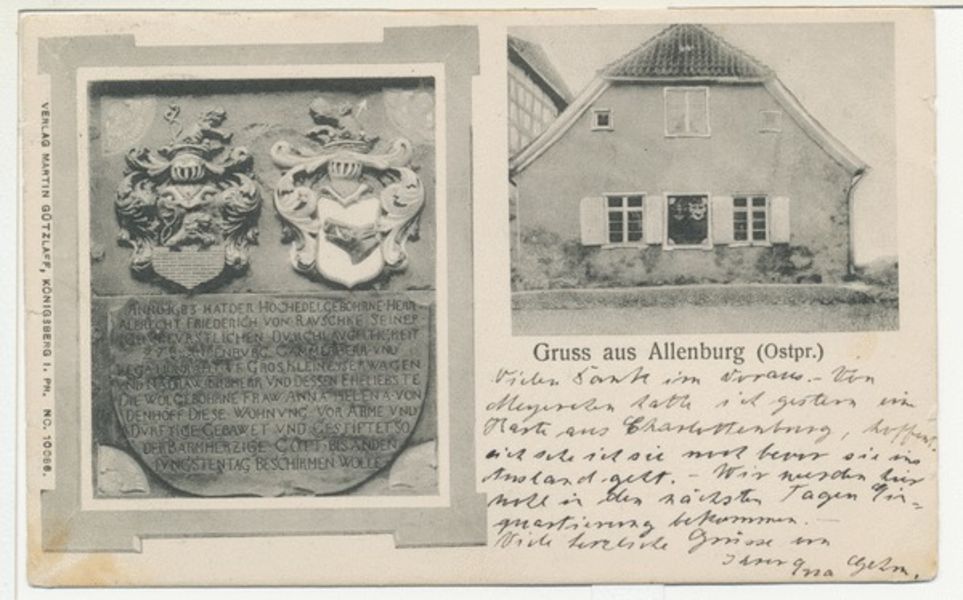 VERLAG MARTIN GÜTZLAFF, KÖNIGSBERG I. PR. NO. 10066.
ANNO 1683 HAT DER HOCHEDELGEBOHRNE HERR
ALBRECHT FRIEDERICH VON RAVSCHKE SEINER
CHVRFVRSTLICHEN DVRCHLAVCHTIGKEIT
CAMMERHERR VND
GROS KLEINEYSERWAGEN
ERBHERR VND DESSEN EHELIEBSTE
DIE WOLGEBOHRNE FRAW ANNA HELENA VON
DENHOFF DIESE WOHNVNG VOR ARME VND
DVRFTIGE GEBAWET VND GESTIFTET SO
DER BARMHERZIGE GOTT BIS AN DEN
IVNGSTEN TAG BESCHIRMEN WOLLE
Gruss aus Allenburg (Ostpr.)
Vielen Dank im Voraus. - Von
hatte ich gestern eine
Karte aus Charlottenburg, hoffentl.
sehe ich sie noch bevor sie ins
Ausland geht. - Wir werden hier
wohl in den nächsten Tagen Ein=
quartierung bekommen. -
Viele herzliche Grüsse von
Ihrer